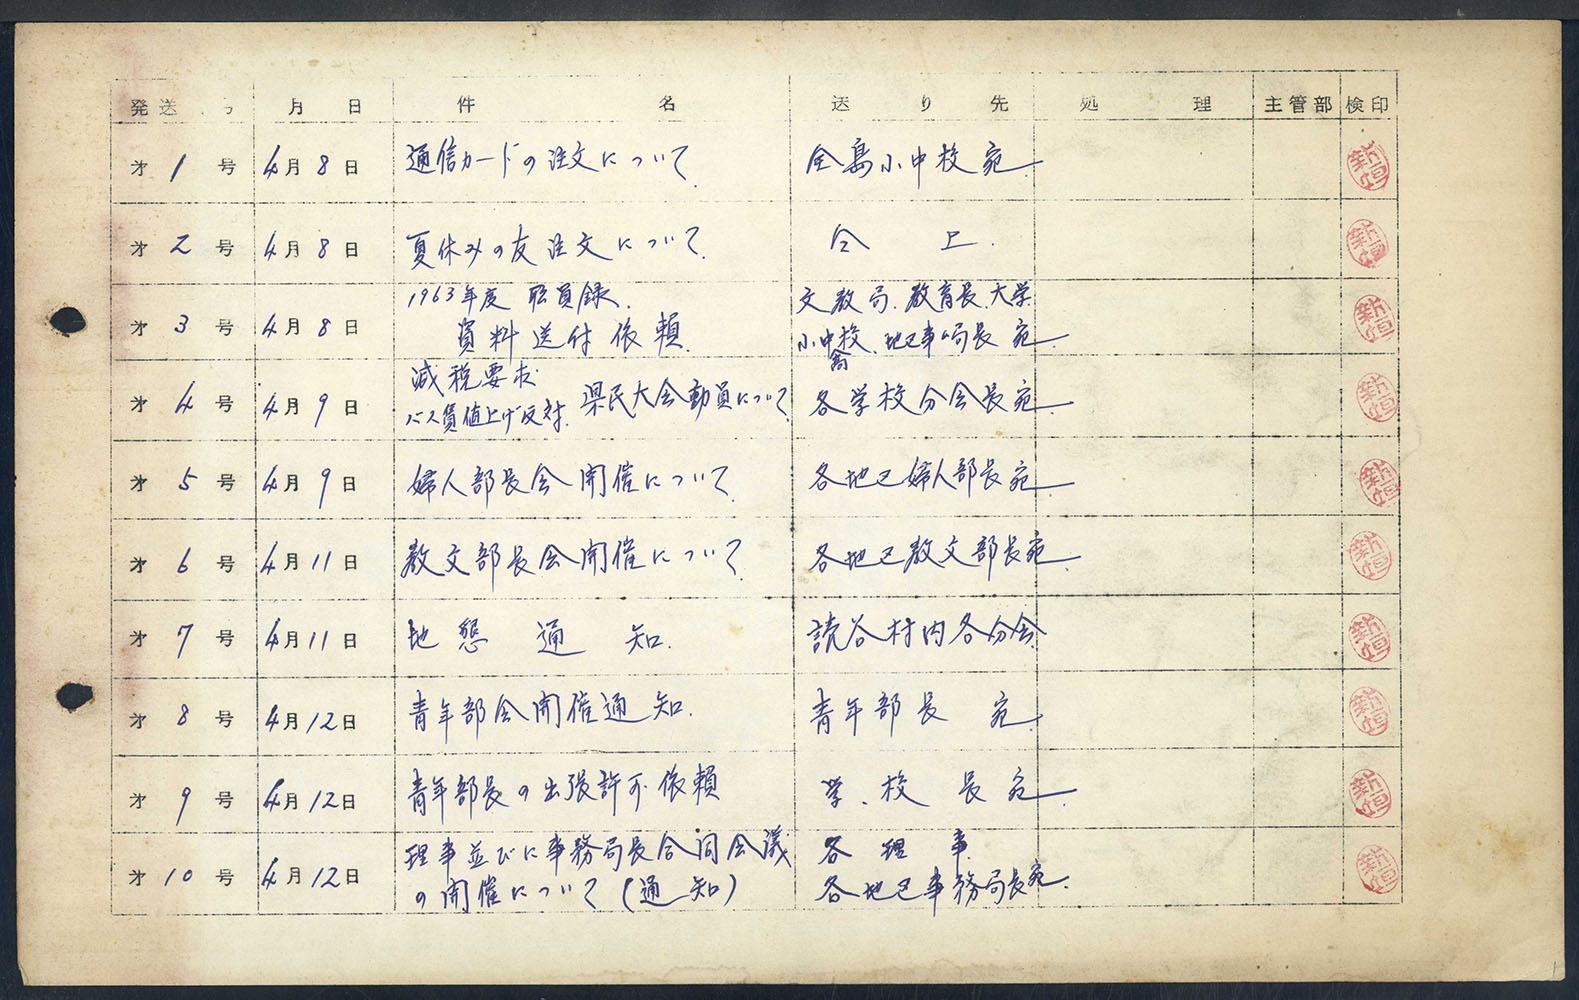 発送 号 月 日 件 名 送 り 先 処 理 主管部 検印
才 1 号 4月 8日 通信カードの注文について 全島小中校宛 新垣
才 2 号 4月 8日 夏休みの友注文について 仝 上 新垣
才 3 号 4月 8日 1963年度 職員録 資料送付依頼 文教局、教育長、大学 小中高校、地区事ム局長宛 新垣
才 4 号 4月 9日 減税要求 バス賃値上げ反対 県民大会動員について 各学校分会長宛 新垣
才 5 号 4月 9日 婦人部長会開催について 各地区婦人部長宛 新垣
才 6 号 4月 11日 教文部長会開催について 各地区教文部長宛 新垣
才 7 号 4月 11日 地懇通知 読谷村内各分会 新垣
才 8 号 4月 12日 青年部会開催通知 青年部長 宛 新垣
才 9 号 4月 12日 青年部長の出張許可依頼 学校長宛 新垣
才 10 号 4月 12日 理事並びに事務局長合同会議 の開催について(通知) 各理事 各地区事務局長宛 新垣